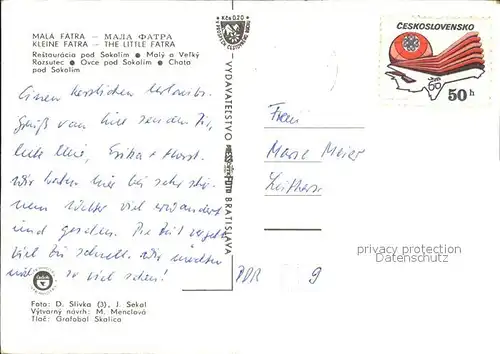 MALÁ FATRA — МАЛА ФАТРА
KLEINE FATRA — THE LITTLE FATRA
Reštaurácia pod Sokolím ● Malý a Veľký
Rozsutec ● Ovce pod Sokolím ● Chata
pod Sokolím
Einen herzlichen Urlaubs-
gruß von hier senden Dir,
Erika + Horst.
Wir haben hier bei sehr schö-
nem viel erwandert
und gesehen. Die Zeit vergeht
viel zu schnell. Wir möchten
noch so viel sehen!
Foto: D. Slivka (3), J. Sekal
Výtvarný návrh: M. Menclová
Tlač: Grafobal Skalica
Kčs 0,20
VYDAVATEĽSTVO
BRATISLAVA
ČESKOSLOVENSKO
60
50 h
Frau
Meier
privacy protection
Datenschutz
DDR 9